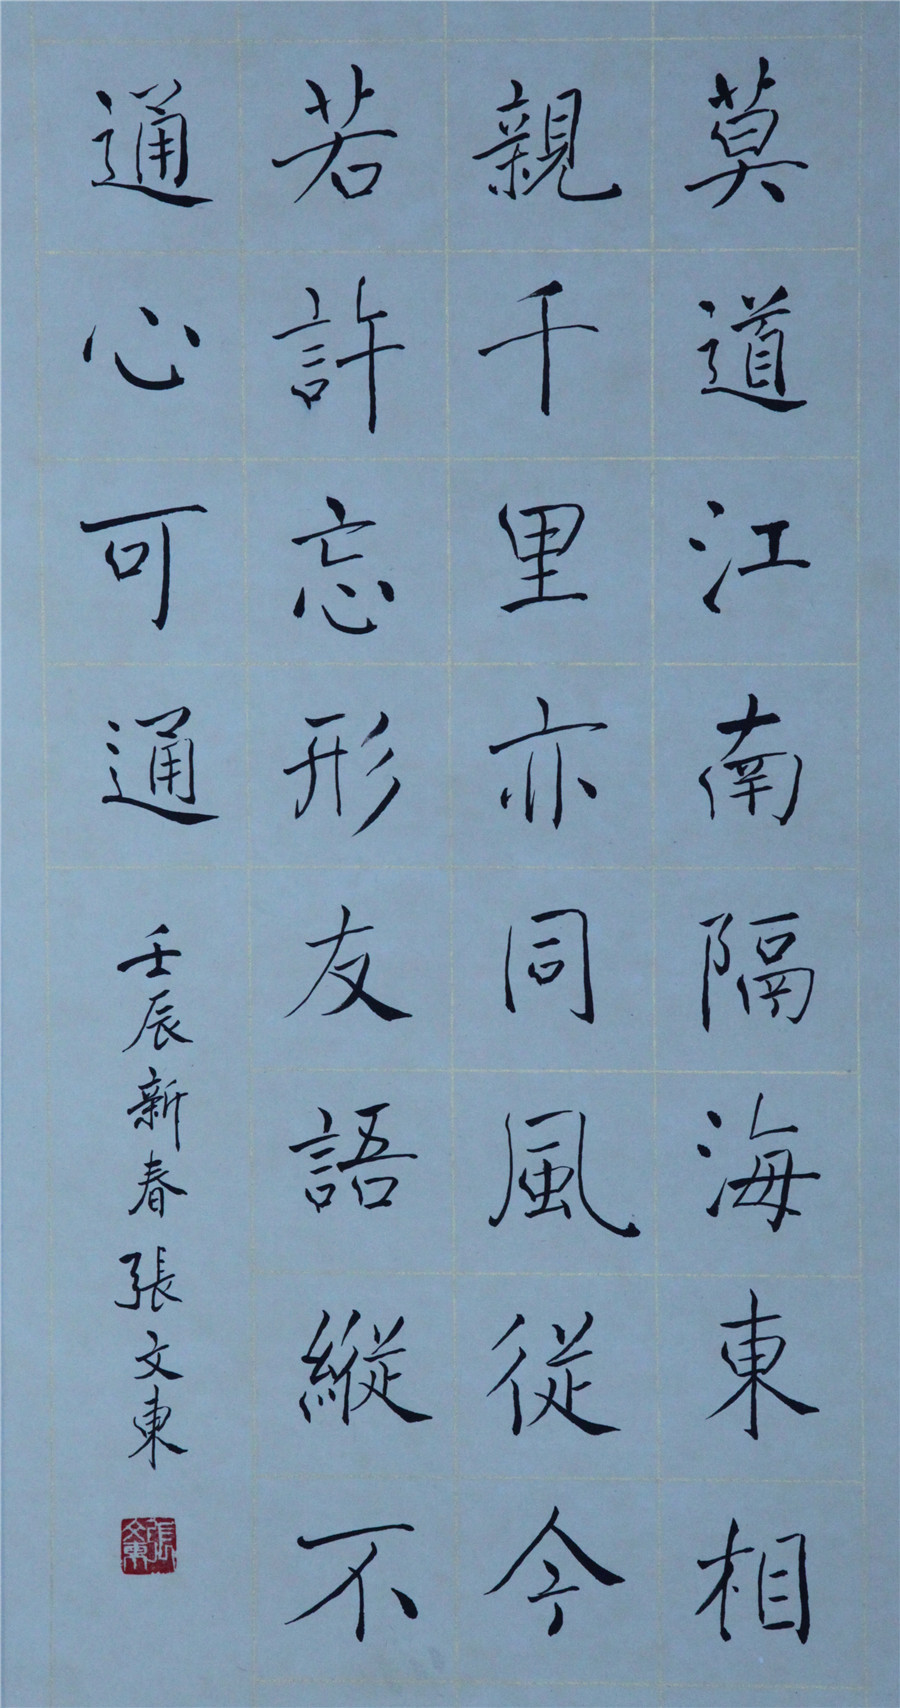 莫道江南隔海東相
親千里亦同風從今
若許忘形友語縱不
通心可通
壬辰新春張文東
張文東